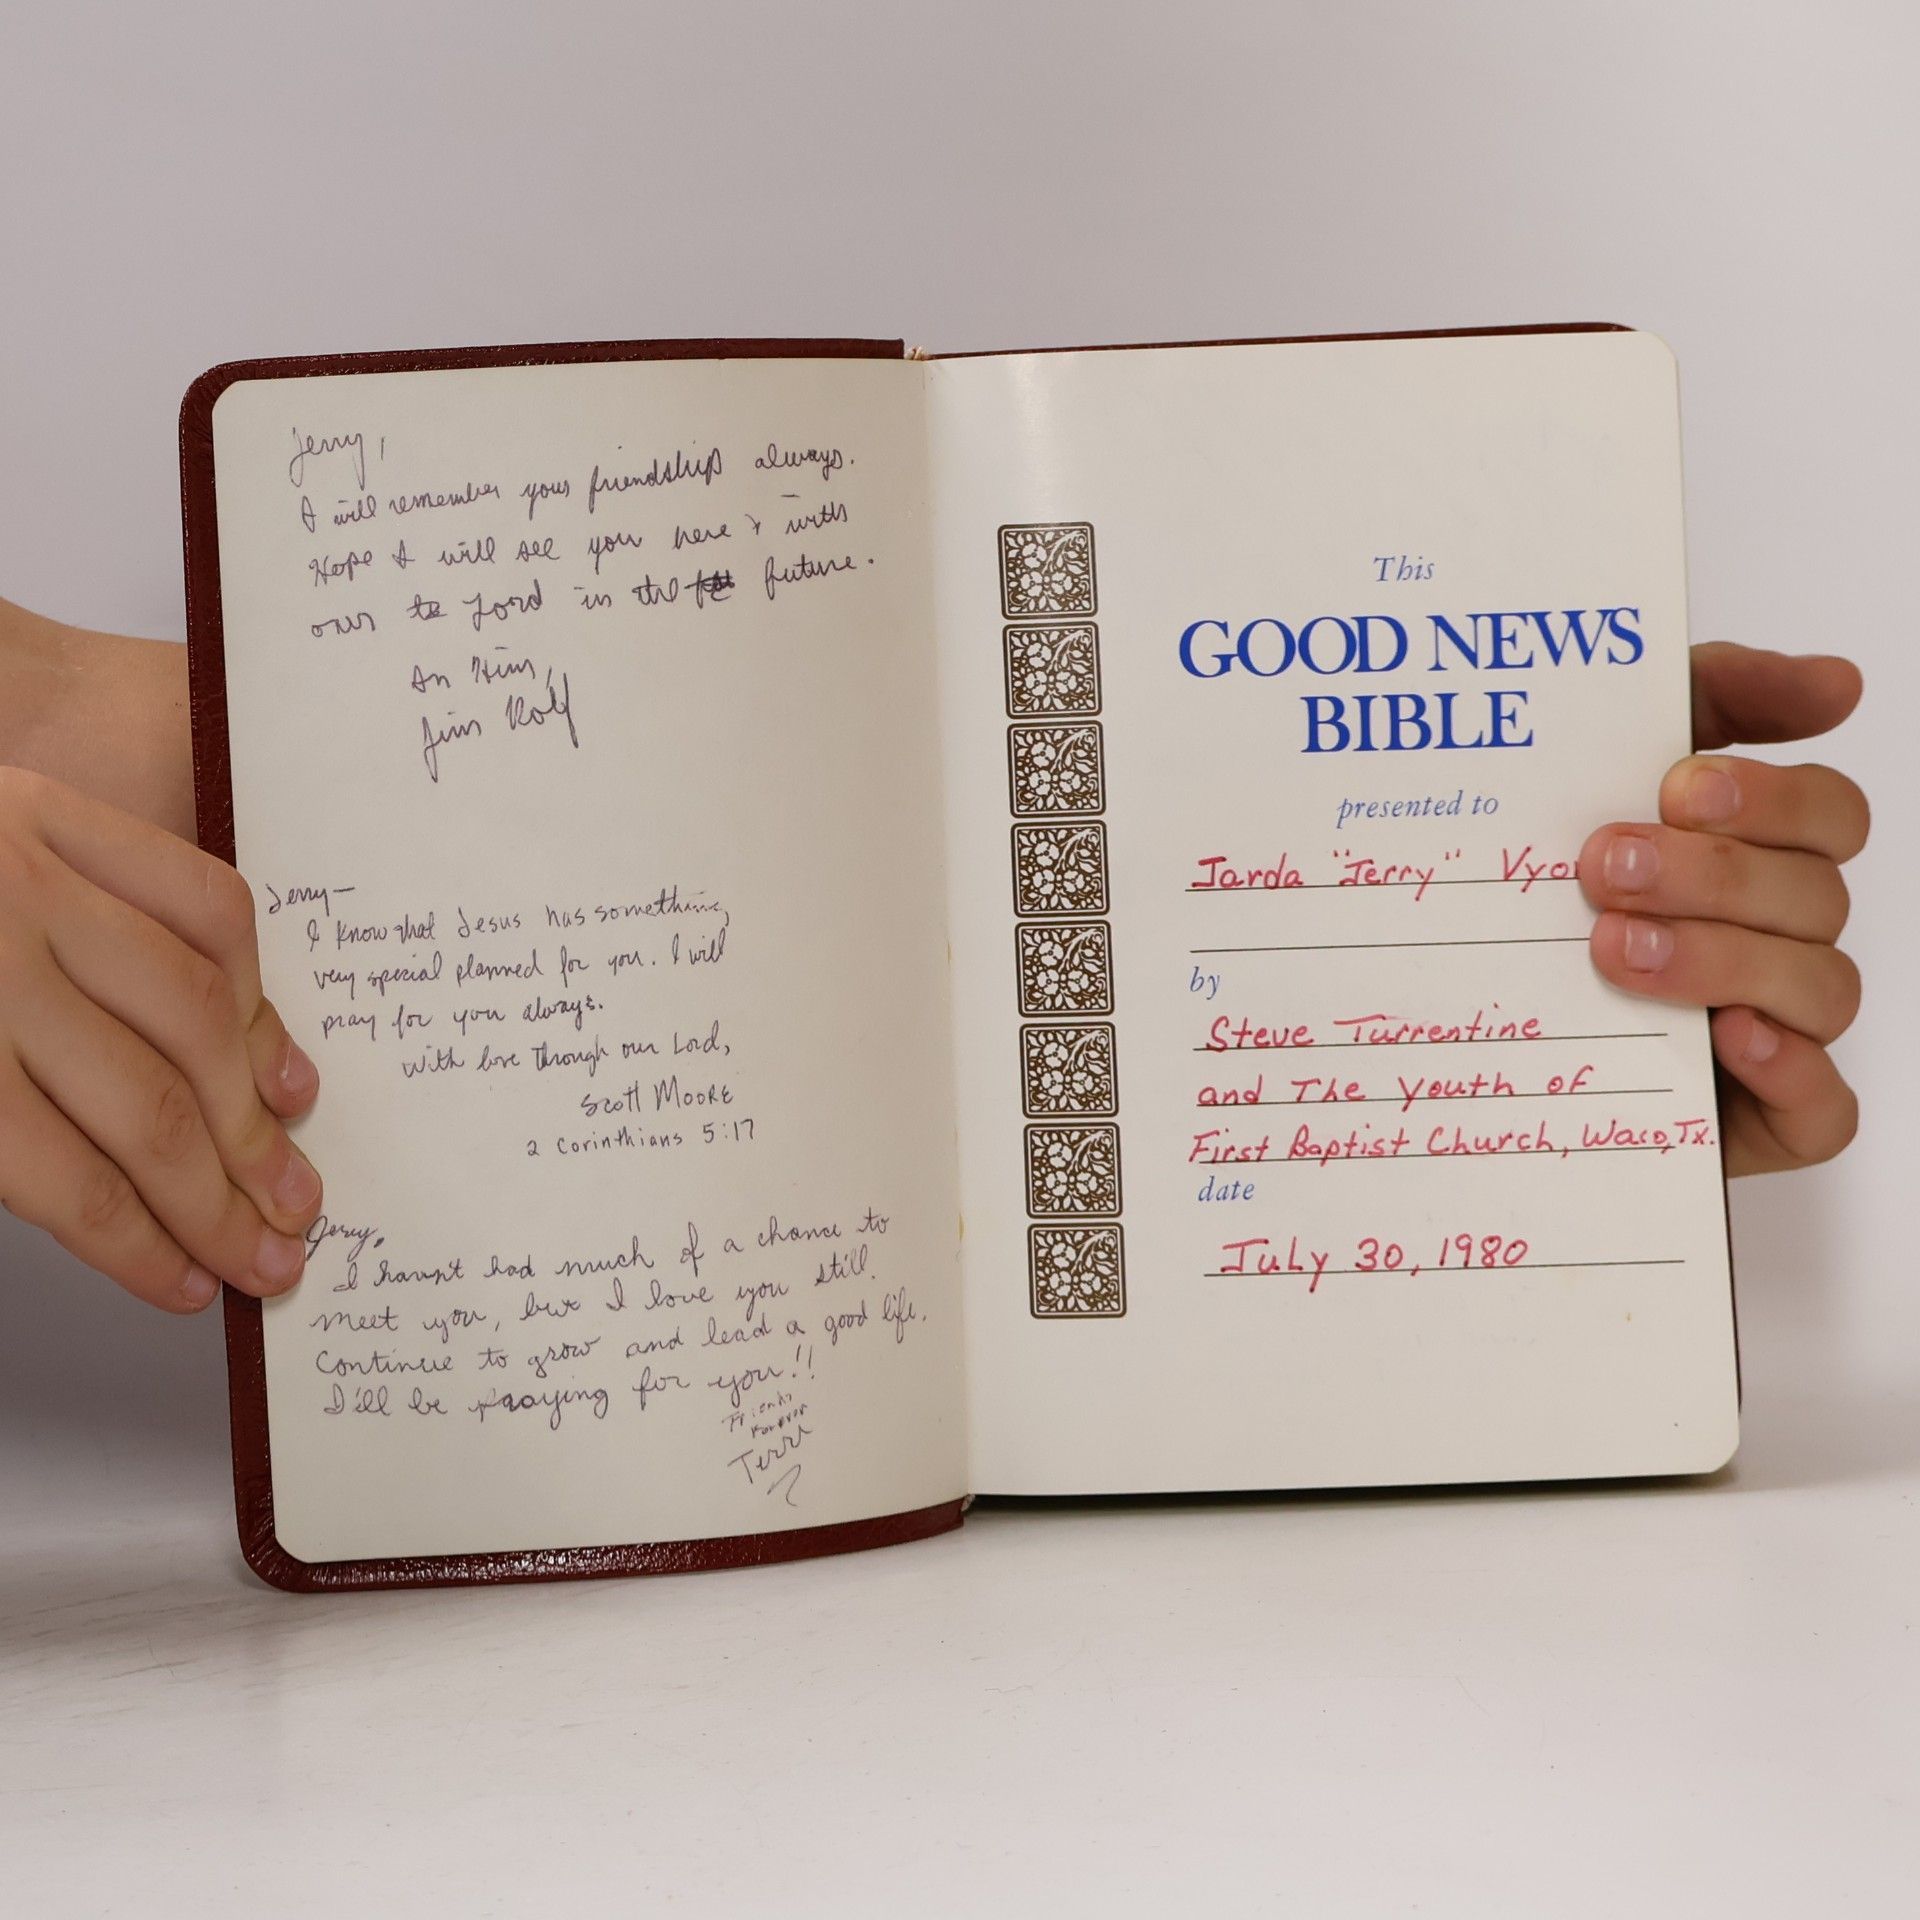 Jerry,
I will remember your friendship always.
Hope I will see you here & with
our Lord in the future.
In Him,
Jim Rolf
Jerry—
I know that Jesus has something
very special planned for you. I will
pray for you always.
With love through our Lord,
Scott Moore
2 Corinthians 5:17
Jerry,
I havn't had much of a chance to
meet you, but I love you still.
Continue to grow and lead a good life.
I'll be praying for you!!
Friends
Forever
Terri
This
GOOD NEWS
BIBLE
presented to
Jarda "Jerry"
by
Steve Turrentine
and The Youth of
First Baptist Church, Waco, Tx.
date
July 30, 1980